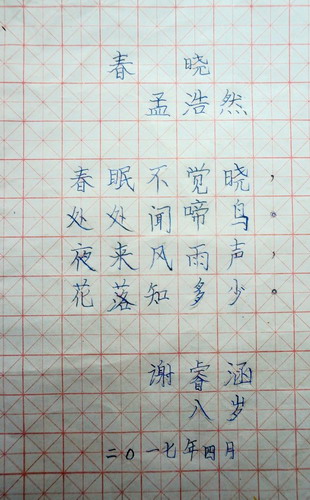 春晓
孟浩然
春眠不觉晓，
处处闻啼鸟。
夜来风雨声，
花落知多少。
谢睿涵
八岁
二0一七年四月